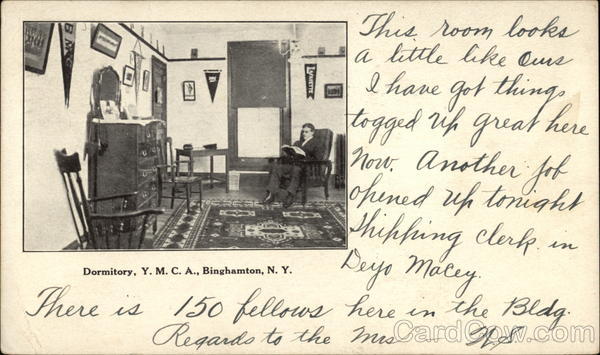 This room looks
a little like Ours
I have got things
togged up great here
Now. Another job
opened up tonight
Shipping clerk in
Deyo Macey.
Dormitory, Y. M. C. A., Binghamton, N. Y.
There is 150 fellows here in the Bldg.
Regards to the Mrs
CardCow.com